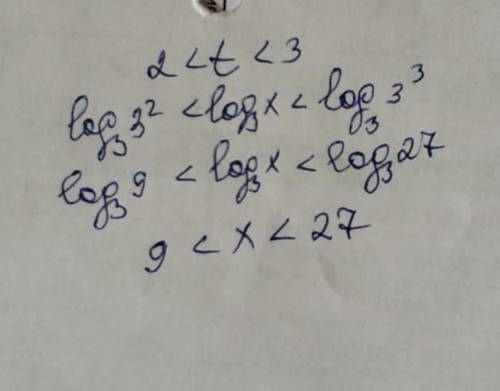 2 < t < 3
log₃3² < log₃x < log₃3³
log₃9 < log₃x < log₃27
9 < x < 27